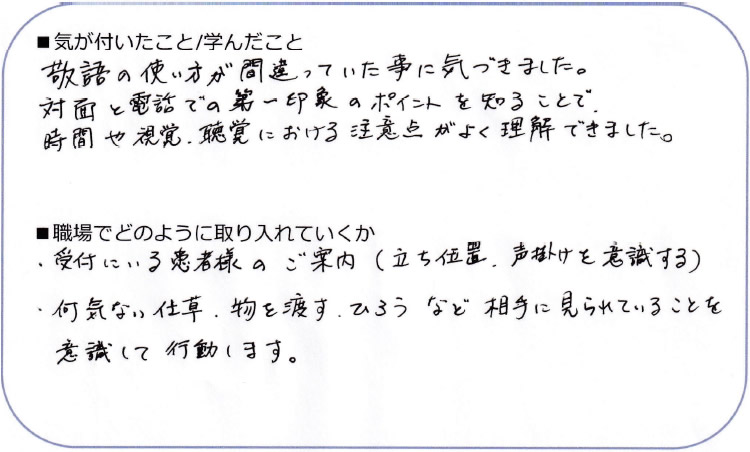 ■気が付いたこと/学んだこと
敬語の使い方が間違っていた事に気づきました。
対面と電話での第一印象のポイントを知ることで、
時間や視覚、聴覚における注意点がよく理解できました。
■職場でどのように取り入れていくか
・受付にいる患者様のご案内（立ち位置、声掛けを意識する）
・何気ない仕草、物を渡す、ひろうなど相手に見られていることを
意識して行動します。